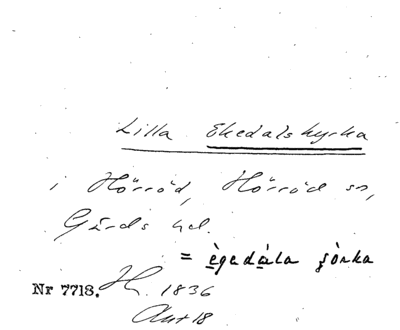 Lilla Ekedalskyrka
i Hörröd, Hörröd sn,
Gärds hd.
= ègedàla ʂòrka
Nr 7718. H. 1836